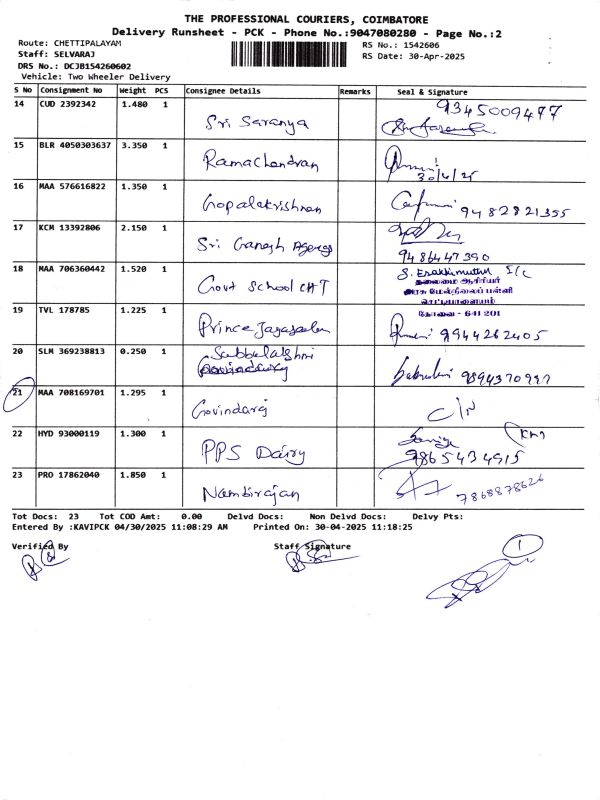 THE PROFESSIONAL COURIERS, COIMBATORE
Delivery Runsheet - PCK - Phone No.:9047080280 - Page No.:2
Route: CHETTIPALAYAM
Staff: SELVARAJ
DRS No.: DCJB154260602
Vehicle: Two Wheeler Delivery
RS No.: 1542606
RS Date: 30-Apr-2025
S No Consignment No Weight PCS Consignee Details Remarks Seal & Signature
14 CUD 2392342 1.480 1 Sri Saranya 9345009477
15 BLR 4050303637 3.350 1 Ramachandran
30/4/25
16 MAA 576616822 1.350 1 Gopalakrishnan 9482821355
17 KCM 13392806 2.150 1 Sri Ganesh Agency
9486447390
18 MAA 706360442 1.520 1 Govt School CHT S. Esakkimuthu I/c
தலைமை ஆசிரியர்
அரசு மேல்நிலைப் பள்ளி
செட்டிபாளையம்
கோவை - 641 201
19 TVL 178785 1.225 1 Prince 9944262405
20 SLM 369238813 0.250 1 Subbulakshmi 9894370997
21 MAA 708169701 1.295 1 Govindaraj C/N
22 HYD 93000119 1.300 1 PPS Dairy
9865434915
23 PRO 17862040 1.850 1 Nambirajan 7868878626
Tot Docs: 23 Tot COD Amt: 0.00 Delvd Docs: Non Delvd Docs: Delvy Pts:
Entered By :KAVIPCK 04/30/2025 11:08:29 AM Printed On: 30-04-2025 11:18:25
Verified By Staff Signature
1